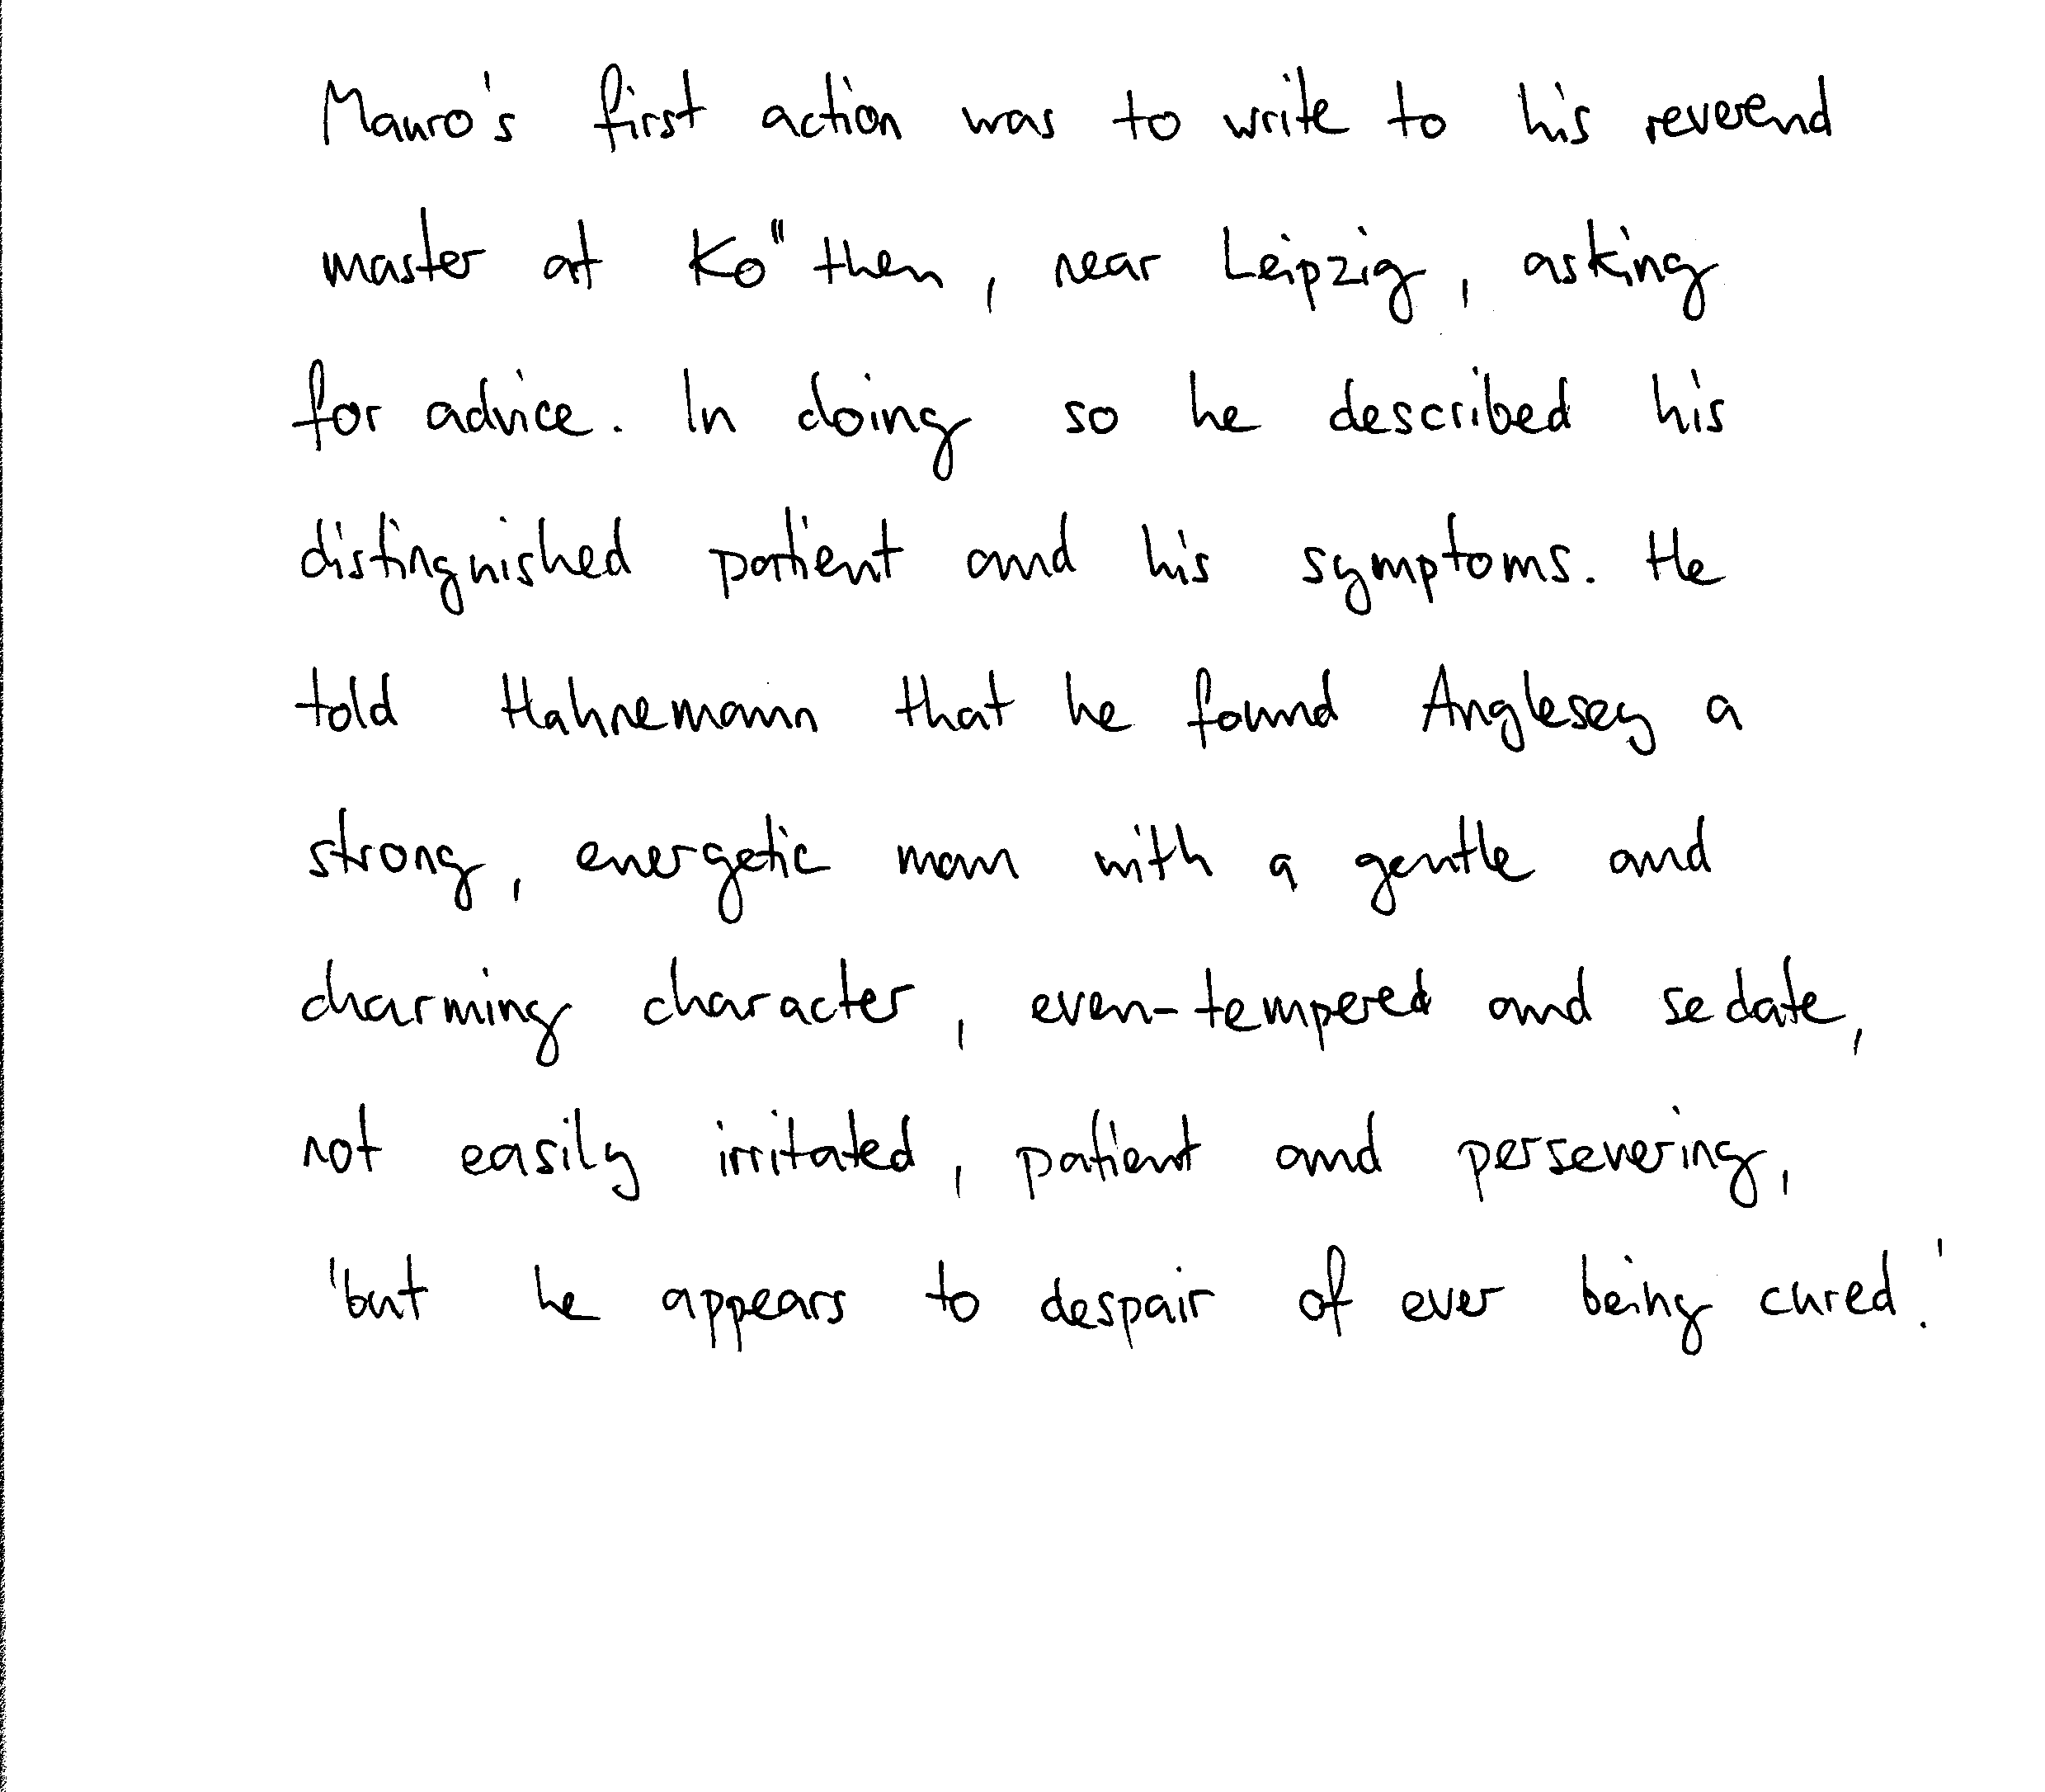 Mauro's first action was to write to his reverend
master at Ko"then, near Leipzig, asking
for advice. In doing so he described his
distinguished patient and his symptoms. He
told Hahnemann that he found Anglesey a
strong, energetic man with a gentle and
charming character, even-tempered and sedate,
not easily irritated, patient and persevering,
'but he appears to despair of ever being cured.'